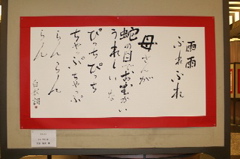 雨雨
ふれふれ
母さんが
蛇の目でお迎い
うれしいな
ぴっちぴっち
ちゃぷちゃぷ
らんらんらん
白秋詞